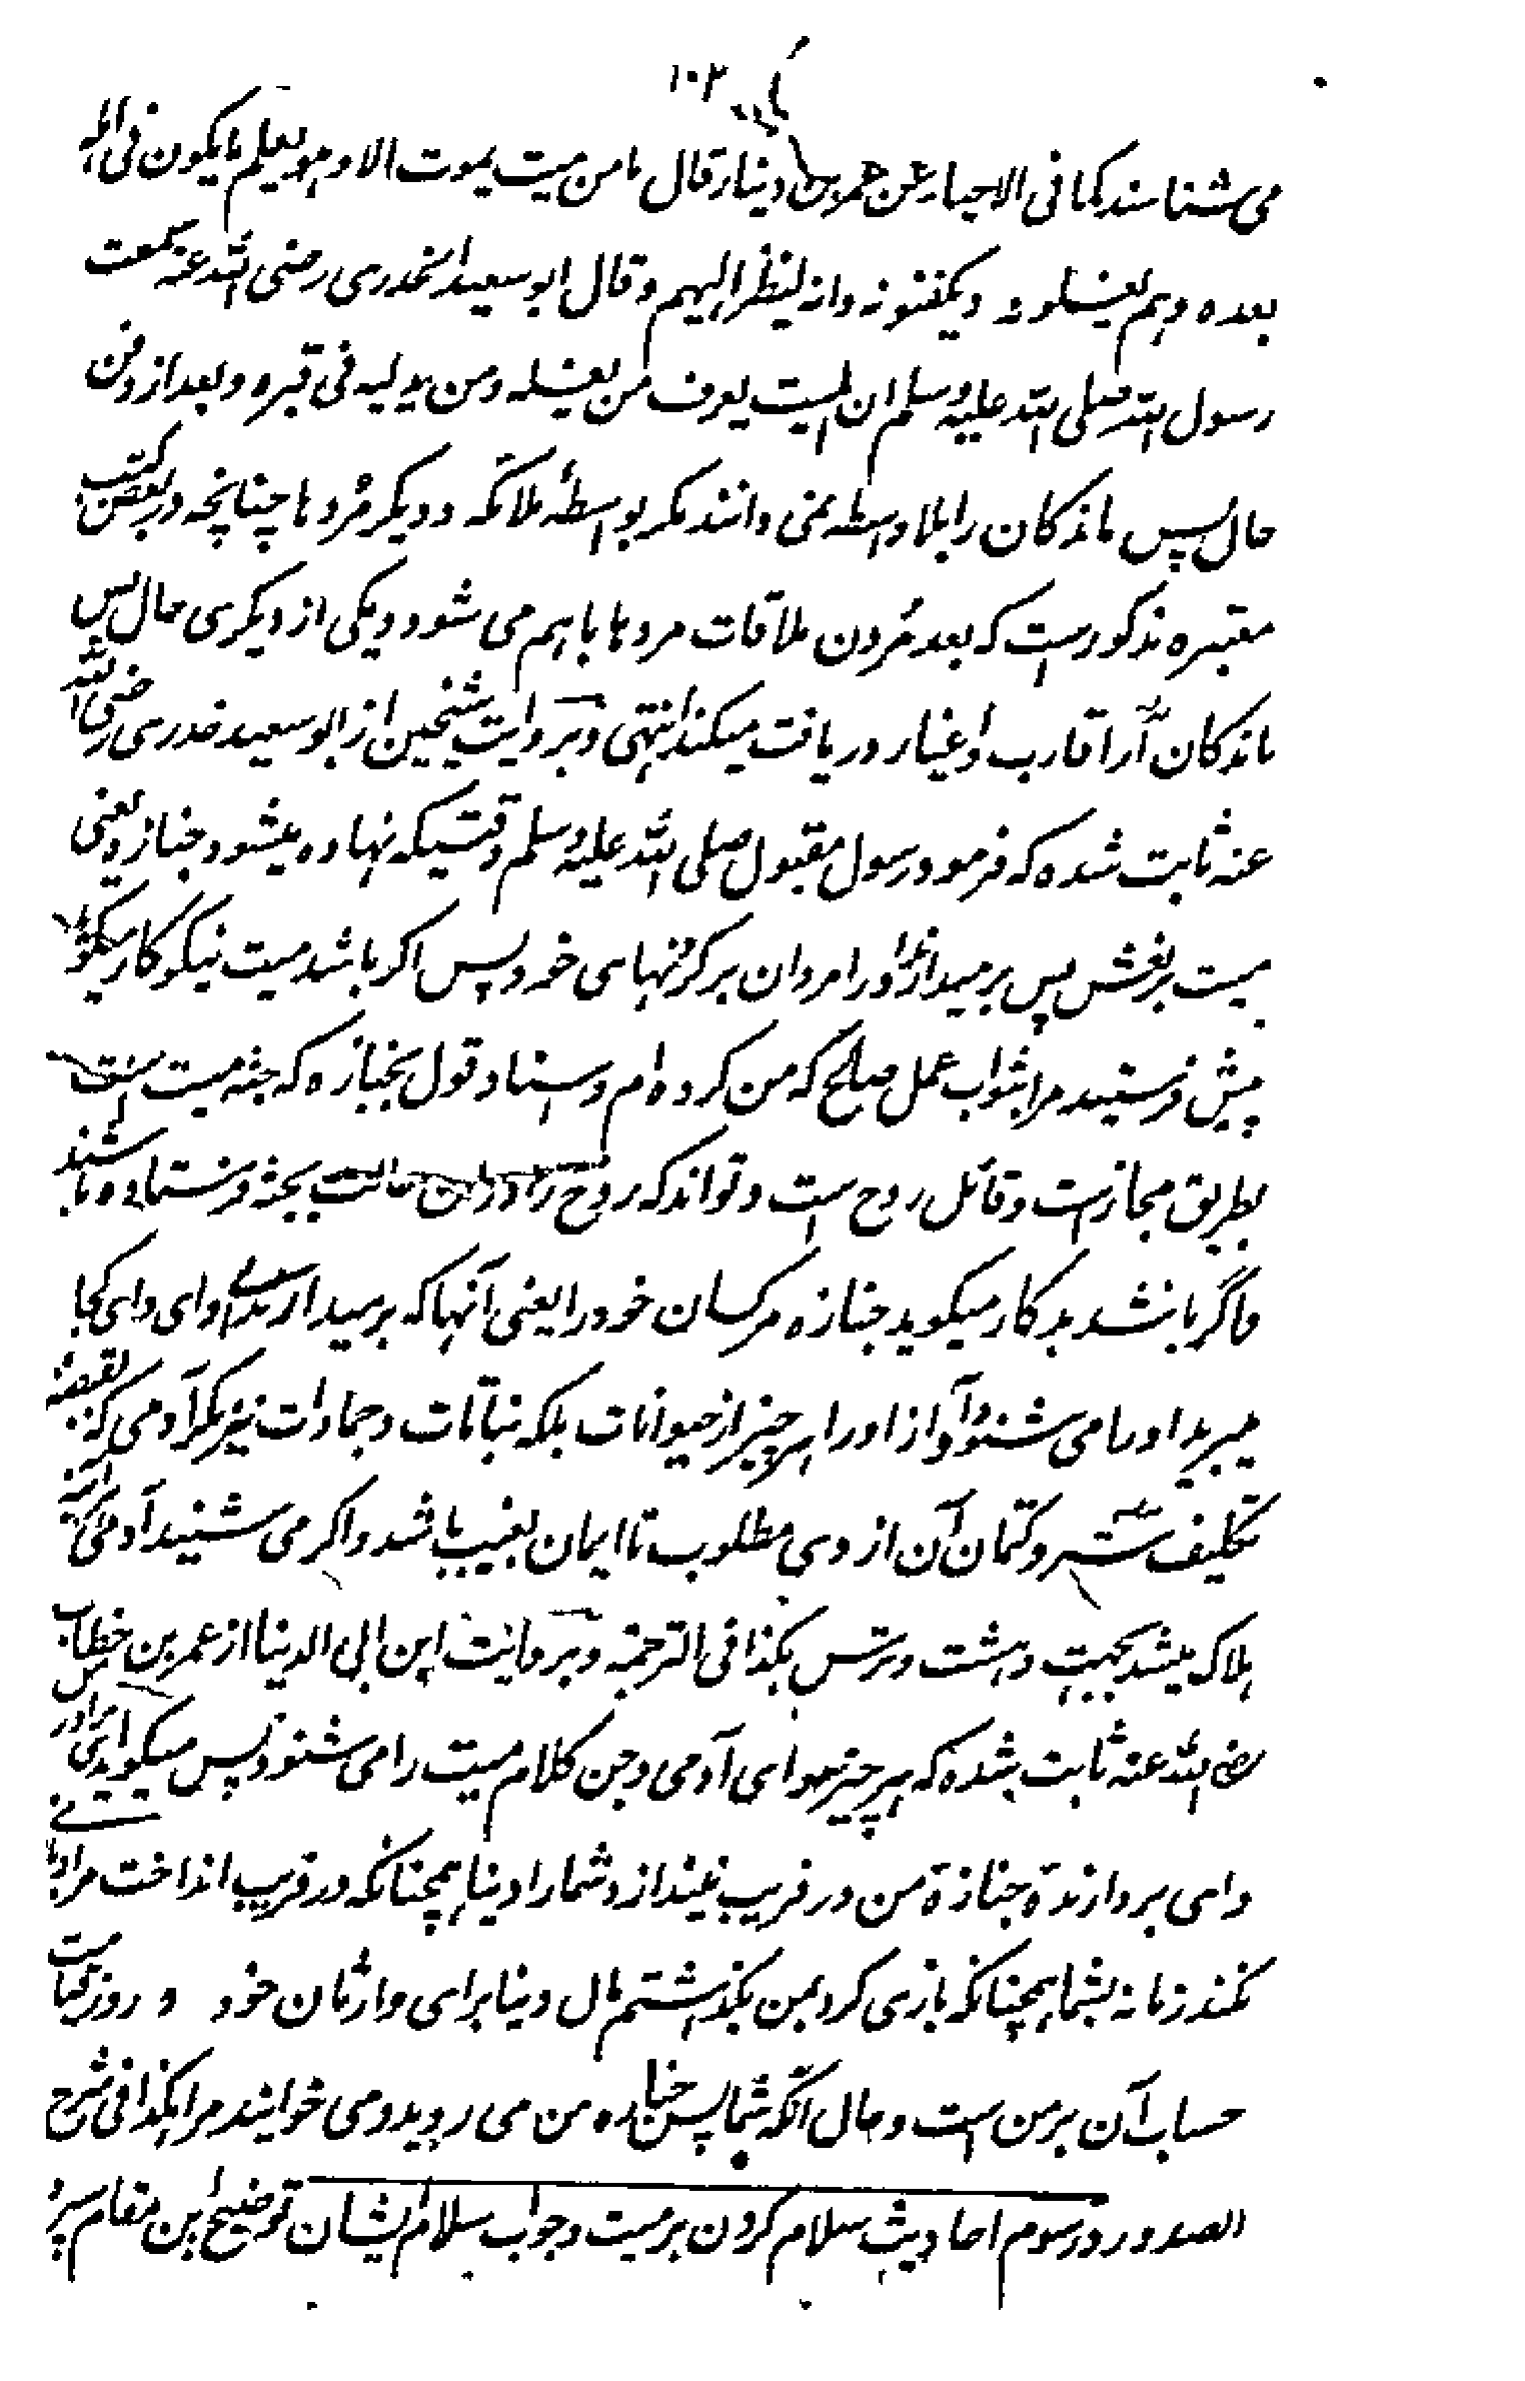 ۱۰۳
می شناسند کما فی الاحیار عن عمر بن دینار قال ما من میت یموت الا وهو یعلم ما یکون فی اهله
بعده وهم یغسلونه ویکفنونه وانه لینظر الیهم وقال ابو سعید الخدری رضی الله عنه سمعت
رسول الله صلی الله علیه وسلم ان المیت یعرف من یغسله ومن یدلیه فی قبره وبعد از دفن
حال پس ماندکان را بلا واسطه نمی دانند مکر بواسطهٔ ملائکه و دیکر مُردها چنانچه در بعض کتب
معتبره مذکورست که بعد مُردن ملاقات مردها باهم می شود و یکی از دیکری حال پس
ماندکان از اقارب و اغیار دریافت میکند انتهی و بروایت شیخین از ابو سعید خدری رضی الله
عنه ثابت شده که فرمود رسول مقبول صلی الله علیه وسلم وقتیکه نهاده میشود جنازه یعنی
میت بر نعش پس برمیدارند او را مردان بر کردنهای خود پس اکر باشد میت نیکوکار میکوید
پیش فرستید مرا بثواب عمل صالح که من کرده ام و اسناد قول بجنازه که جثه میت است
بطریق مجازست و قائل روح است و تواند که روح را دران حالت بجثه فرستاده باشند
و اگر باشد بدکار میکوید جنازه مر کسان خود را یعنی آنها که برمیدارند او ای وای کجا
میبرید او را می شنود آواز او را هر چیز از حیوانات بلکه نباتات و جمادات نیز مکر آدمی که
تکلیف ستر و کتمان آن از وی مطلوب تا ایمان بغیب باشد و اکر می شنید آدمی
هلاک میشد بجهت دهشت و ترس هکذا فی الترجمة و بروایت ابن ابی الدنیا از عمر بن خطاب
رضی الله عنه ثابت شده که هر چیز سوای آدمی و جن کلام میت را می شنود پس میکوید ای برادر
وای بردارندهٔ جنازهٔ من در فریب نیندازد شما را دنیا همچنانکه در فریب انداخت مرا و بازی
نکند زمانه بشما همچنانکه بازی کرد بمن بکذاشتم مال دنیا برای وارثان خود و روز قیامت
حساب آن بر من است و حال آنکه شما پس جنازه من می روید و می خوانید مرا هکذا فی شرح
الصدور در سوم احادیث سلام کردن بر میت و جواب سلام ایشان توضیح این مقام